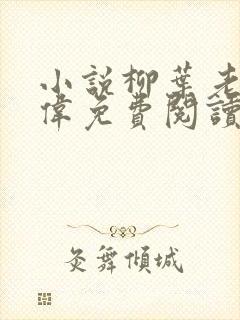 小說柳葉老
偉免費閱讀
灸舞傾城